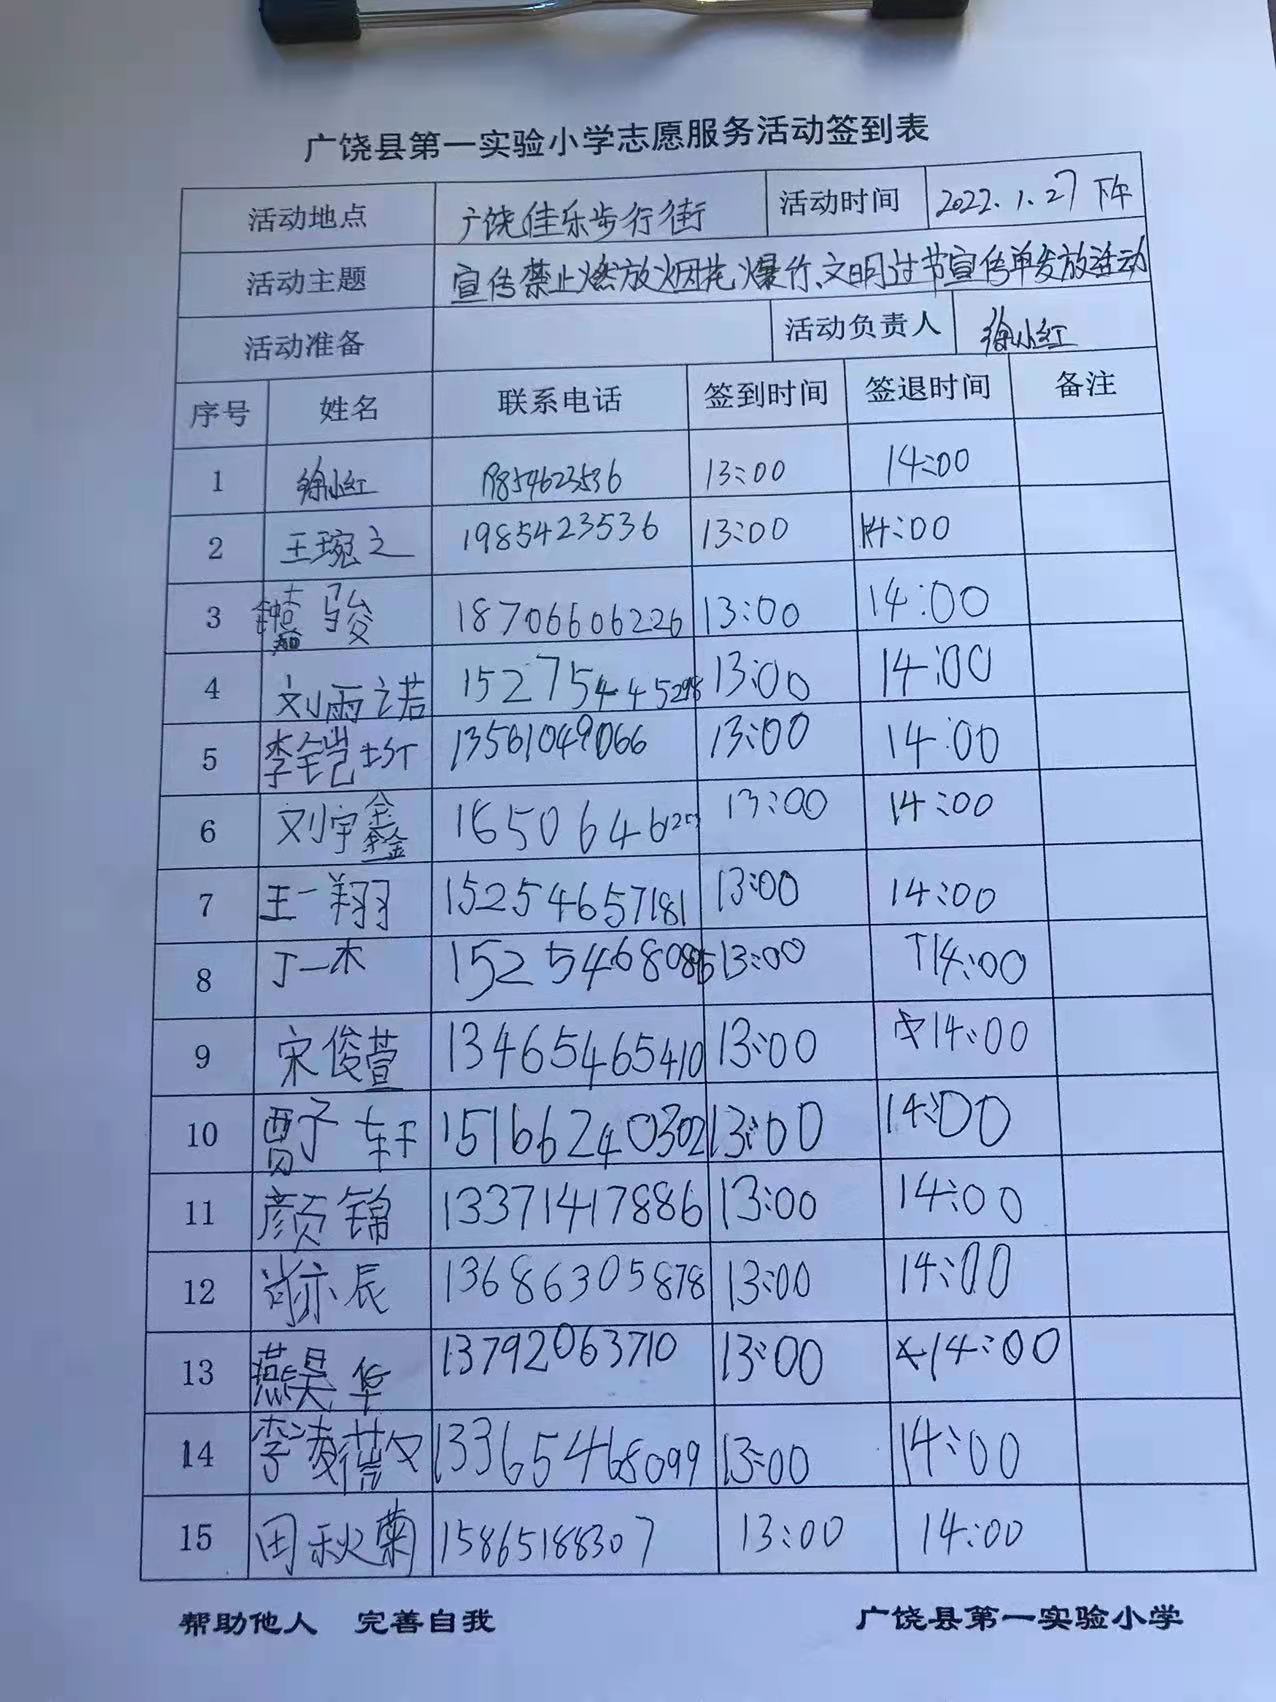 广饶县第一实验小学志愿服务活动签到表
活动地点 广饶佳乐步行街 活动时间 2022.1.27下午
活动主题 宣传禁止燃放烟花爆竹、文明过节宣传单发放活动
活动准备 活动负责人 徐小红
序号 姓名 联系电话 签到时间 签退时间 备注
1 徐小红 13:00 14:00
2 王琬之 1985423536 13:00 14:00
3 骏 18706606226 13:00 14:00
4 刘雨诺 13:00 14:00
5 李铠圻 13561049066 13:00 14:00
6 刘宇鑫 13:00 14:00
7 王一翔 15254657181 13:00 14:00
8 丁一木 13:00 14:00
9 宋俊萱 13465465410 13:00 14:00
10 贾子轩 15166240302 13:00 14:00
11 颜锦 13371417886 13:00 14:00
12 尚亦辰 13686305878 13:00 14:00
13 燕昊华 13792063710 13:00 14:00
14 李凌薇 13365468099 13:00 14:00
15 田秋菊 15865188307 13:00 14:00
帮助他人 完善自我 广饶县第一实验小学